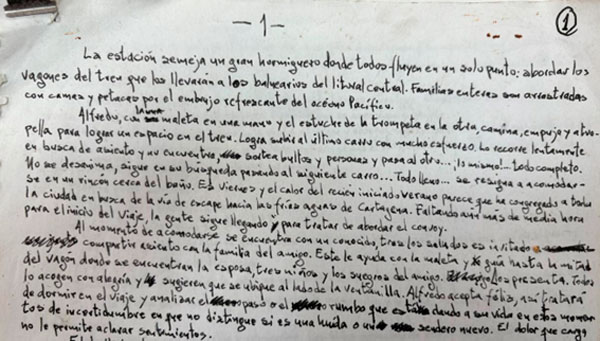 — 1 —
1
La estación semeja un gran hormiguero donde todos fluyen en un solo punto: abordar los
vagones del tren que los llevarán a los balnearios del litoral central. Familias enteras son arrastradas
con camas y petacas por el embrujo refrescante del océano Pacífico.
Alfredo, con la única maleta en una mano y el estuche de la trompeta en la otra, camina, empuja y atro-
pella para lograr un espacio en el tren. Logra subir al último carro con mucho esfuerzo. Lo recorre lentamente
en busca de asiento y no encuentra, sortea bultos y personas y pasa al otro... ¡lo mismo!... todo completo.
No se desanima, sigue en su búsqueda pasando al siguiente carro... Todo lleno... se resigna a acomodar-
se en un rincón cerca del baño. Es viernes y el calor del recién iniciado verano parece que ha congregado a toda
la ciudad en busca de la vía de escape hacia las frías aguas de Cartagena. Faltando aún más de media hora
para el inicio del viaje, la gente sigue llegando y para tratar de abordar el convoy.
Al momento de acomodarse se encuentra con un conocido, tras los saludos es invitado a
compartir asiento con la familia del amigo. Este le ayuda con la maleta y guía hasta la mitad
del vagón donde se encuentran la esposa, tres niños y los suegros del amigo. los presenta. Todos
lo acogen con alegría y sugieren que se ubique al lado de la ventanilla. Alfredo acepta feliz, así tratará
de dormir en el viaje y analizar el paso o el rumbo que está dando a su vida en estos momen-
tos de incertidumbre en que no distingue si es una huida o un sendero nuevo. El dolor que carga
no le permite aclarar sentimientos.